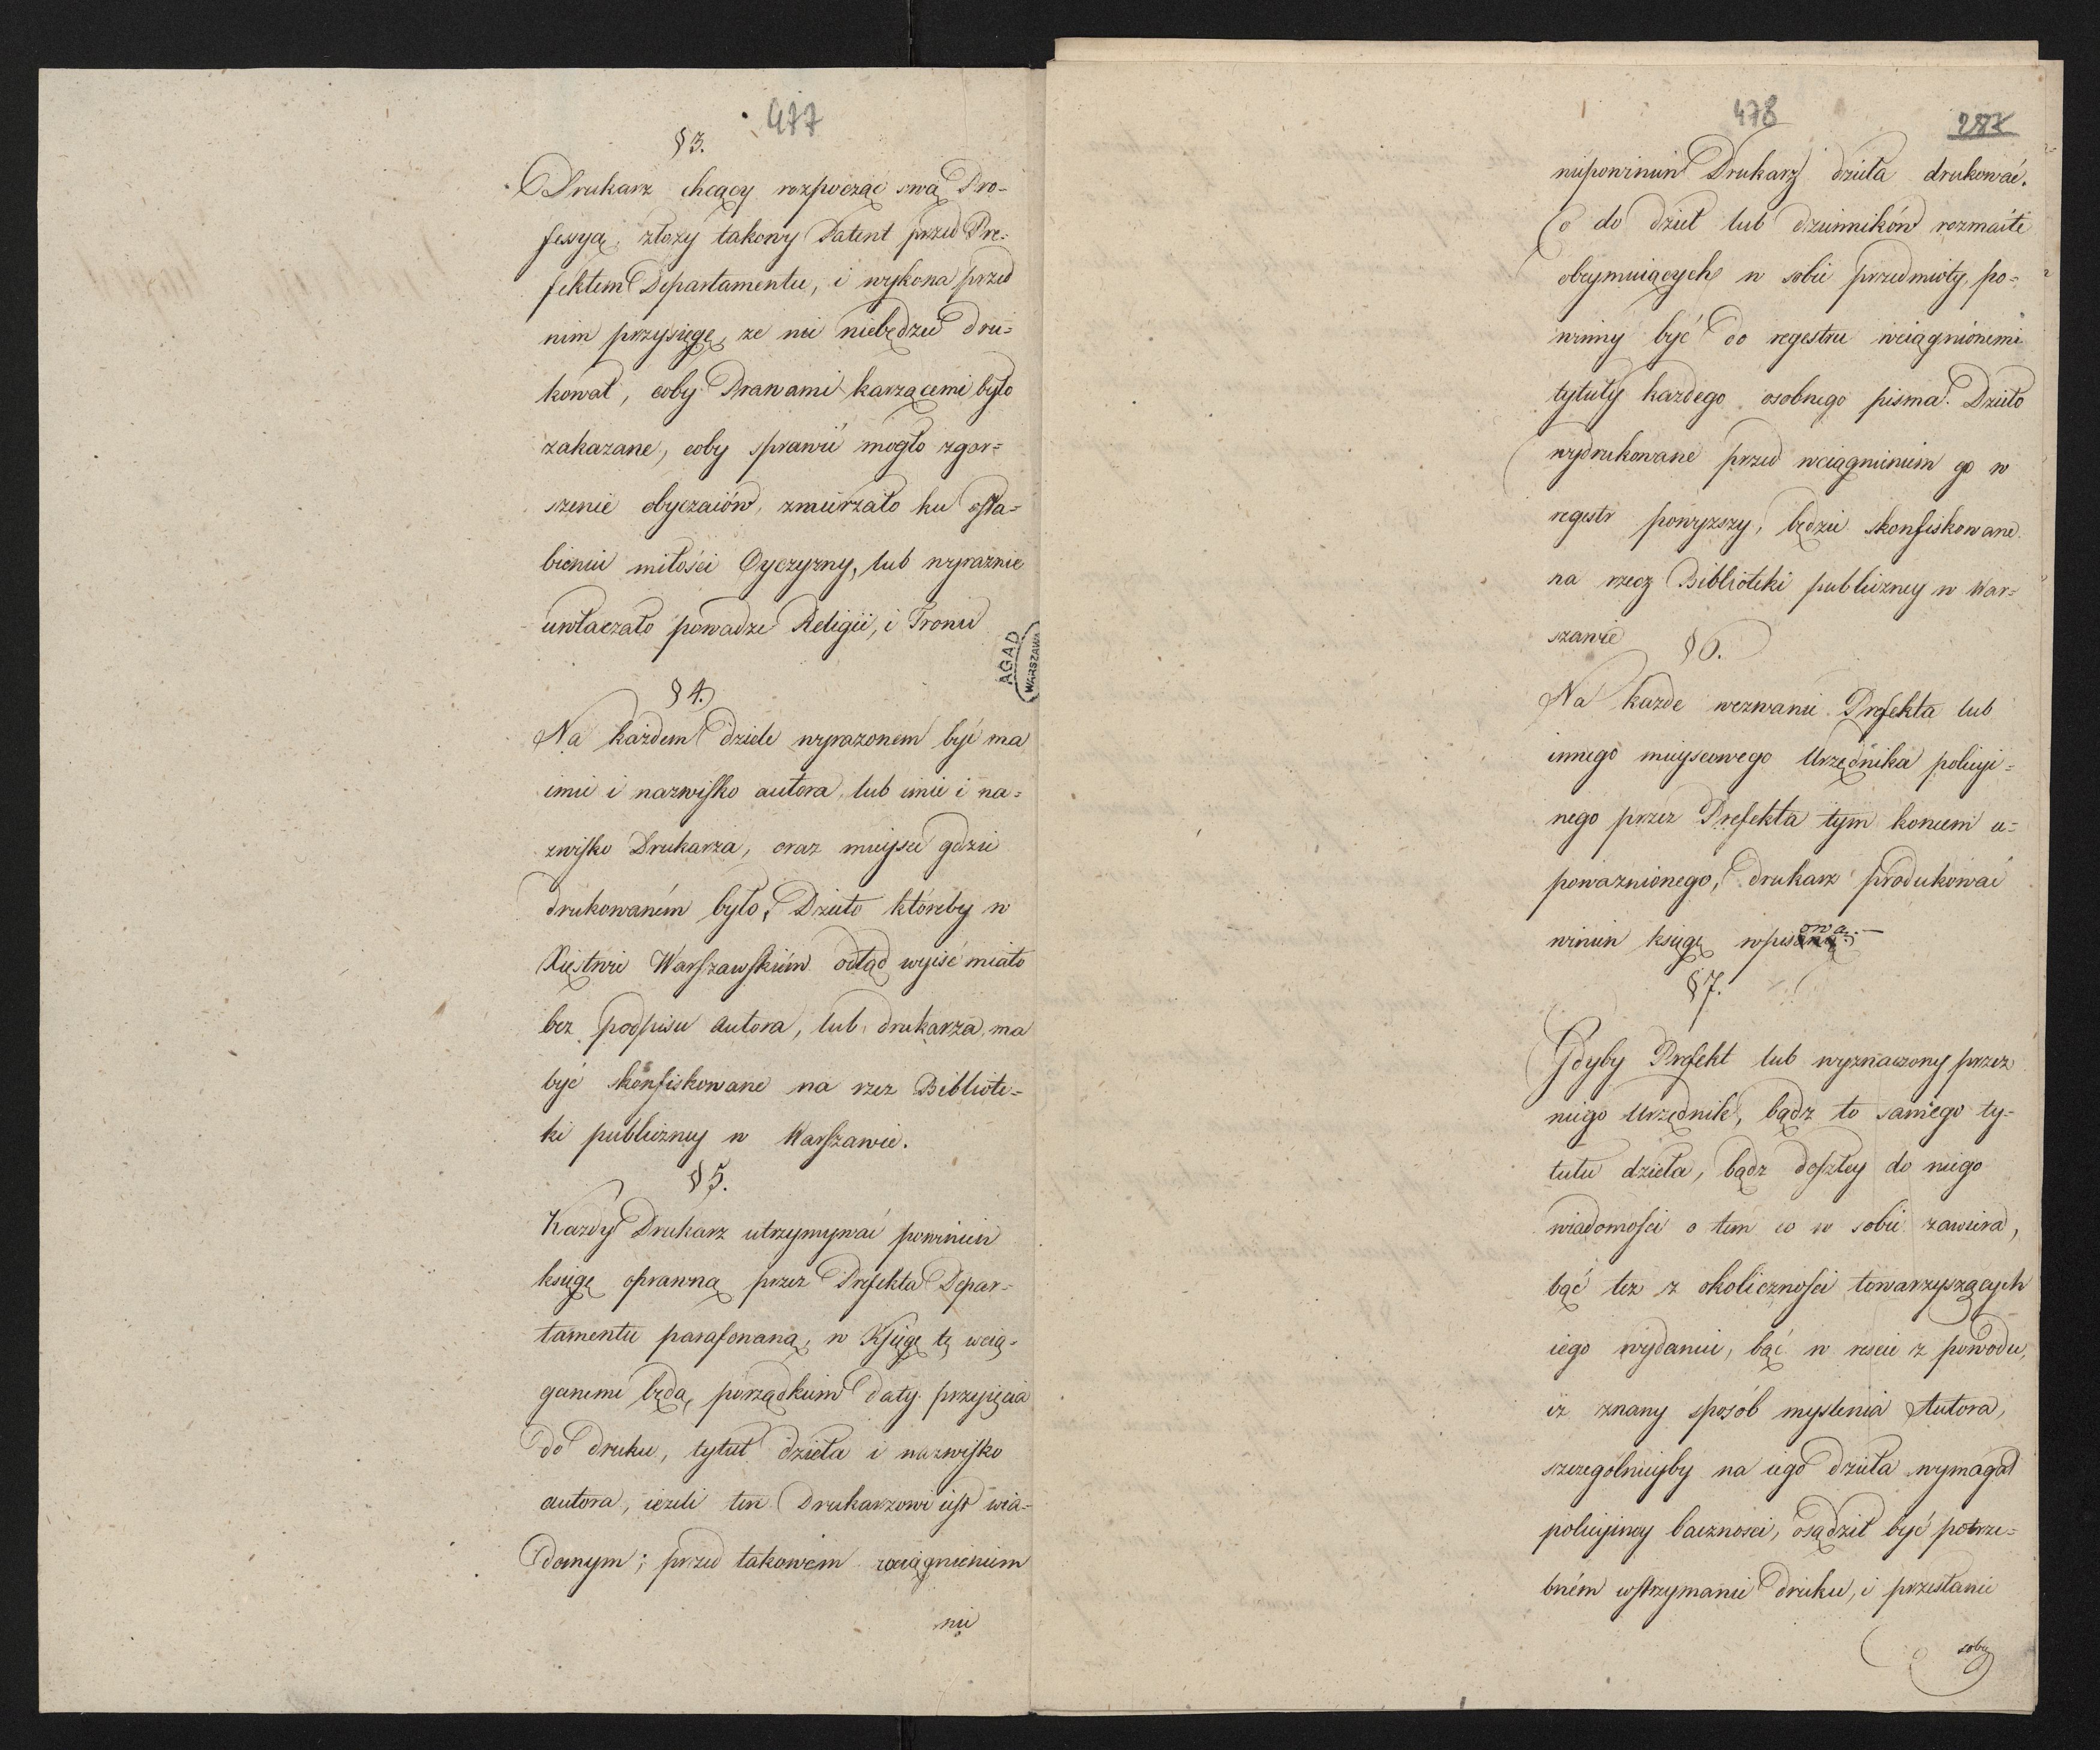 477
§3.
Drukarz chcący rozpocząć swą Pro-
fessyą, złoży takowy Patent przed Pre-
fektem Departamentu, i wykona przed
nim przysięgę, że nic niebędzie dru-
kował, coby Prawami karzącemi było
zakazane, coby sprawić mogło zgor-
szenie obyczaiów, zmierzało ku osła-
bieniu miłości Oyczyzny, lub wyraźnie
uwłaczało powadze Religii, i Tronu
AGAD
WARSZAWA
§4.
Na każdem dziele wyrażonem być ma
imie i nazwisko autora, lub imie i na-
zwisko Drukarza, oraz mieysce gdzie
drukowaném było, Dzieło któreby w
Xięstwie Warszawskiém odtąd wyiść miało
bez podpisu Autora, lub drukarza, ma
być skonfiskowane na rzez Bibliote-
ki publiczney w Warszawie.
§5.
Każdy Drukarz utrzymywać powinien
księgę oprawną przez Prefekta Depar-
tamentu parafowaną, w Księgę tę wcią-
ganemi będą, porządkiem daty przyięcia
do druku, tytuł dzieła i nazwisko
autora, ieżeli ten Drukarzowi iest wia-
domym; przed takowem wciągnieniem
nie
478
287
niepowinien Drukarz dzieła drukować.
Co do dzieł lub dzienników rozmaite
obeymuiących w sobie przedmioty, po-
winny być do regestru wciągnionemi
tytuły każdego osobnego pisma. Dzieło
wydrukowane przed wciągnieniem go w
regestr powyższy, będzie skonfiskowane
na rzecz Biblioteki publiczney w War-
szawie
§6.
Na każde wezwanie Prefekta lub
innego mieyscowego Urzędnika policyi-
nego przez Prefekta tym końcem u-
poważnionego, drukarz produkować
winien księgę wpisową.—
§7.
Gdyby Prefekt lub wyznaczony przez
niego Urzędnik, bądź to samego ty-
tułu dzieła, bądź doszłey do niego
wiadomości o tem co w sobie zawiera,
bąć też z okoliczności towarzyszących
iego wydaniu, bąć w reście z powodu,
iż znany sposób myslenia Autora,
szczególnieyby na iego dzieła wymagał
policyiney baczności, osądził być potrze-
bném wstrzymanie druku, i przesłanie
sobie